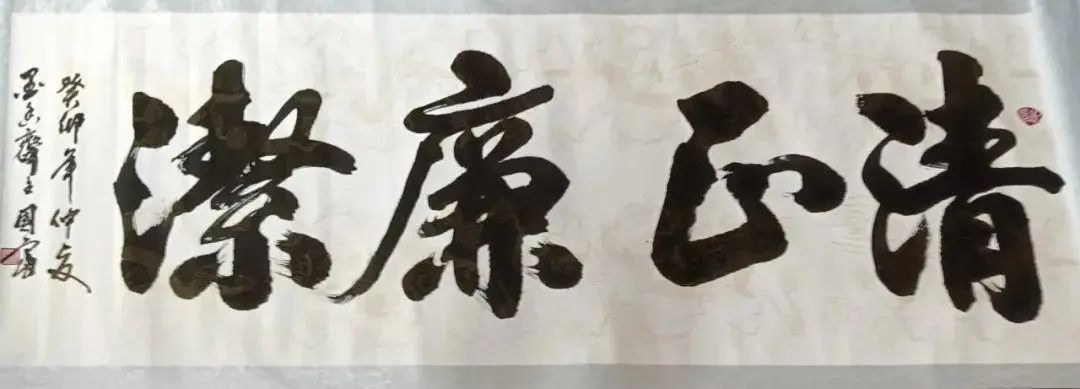 清正廉潔
癸卯年仲夏
墨香齋王國富